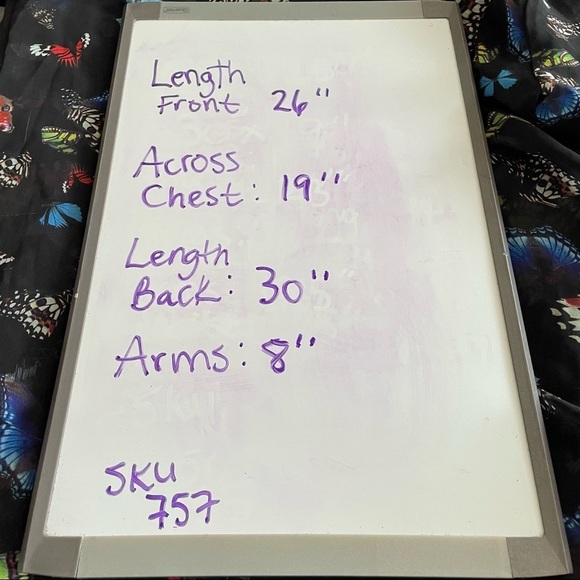 Length
Front 26"
Across
Chest: 19"
Length
Back: 30"
Arms: 8"
SKU
757